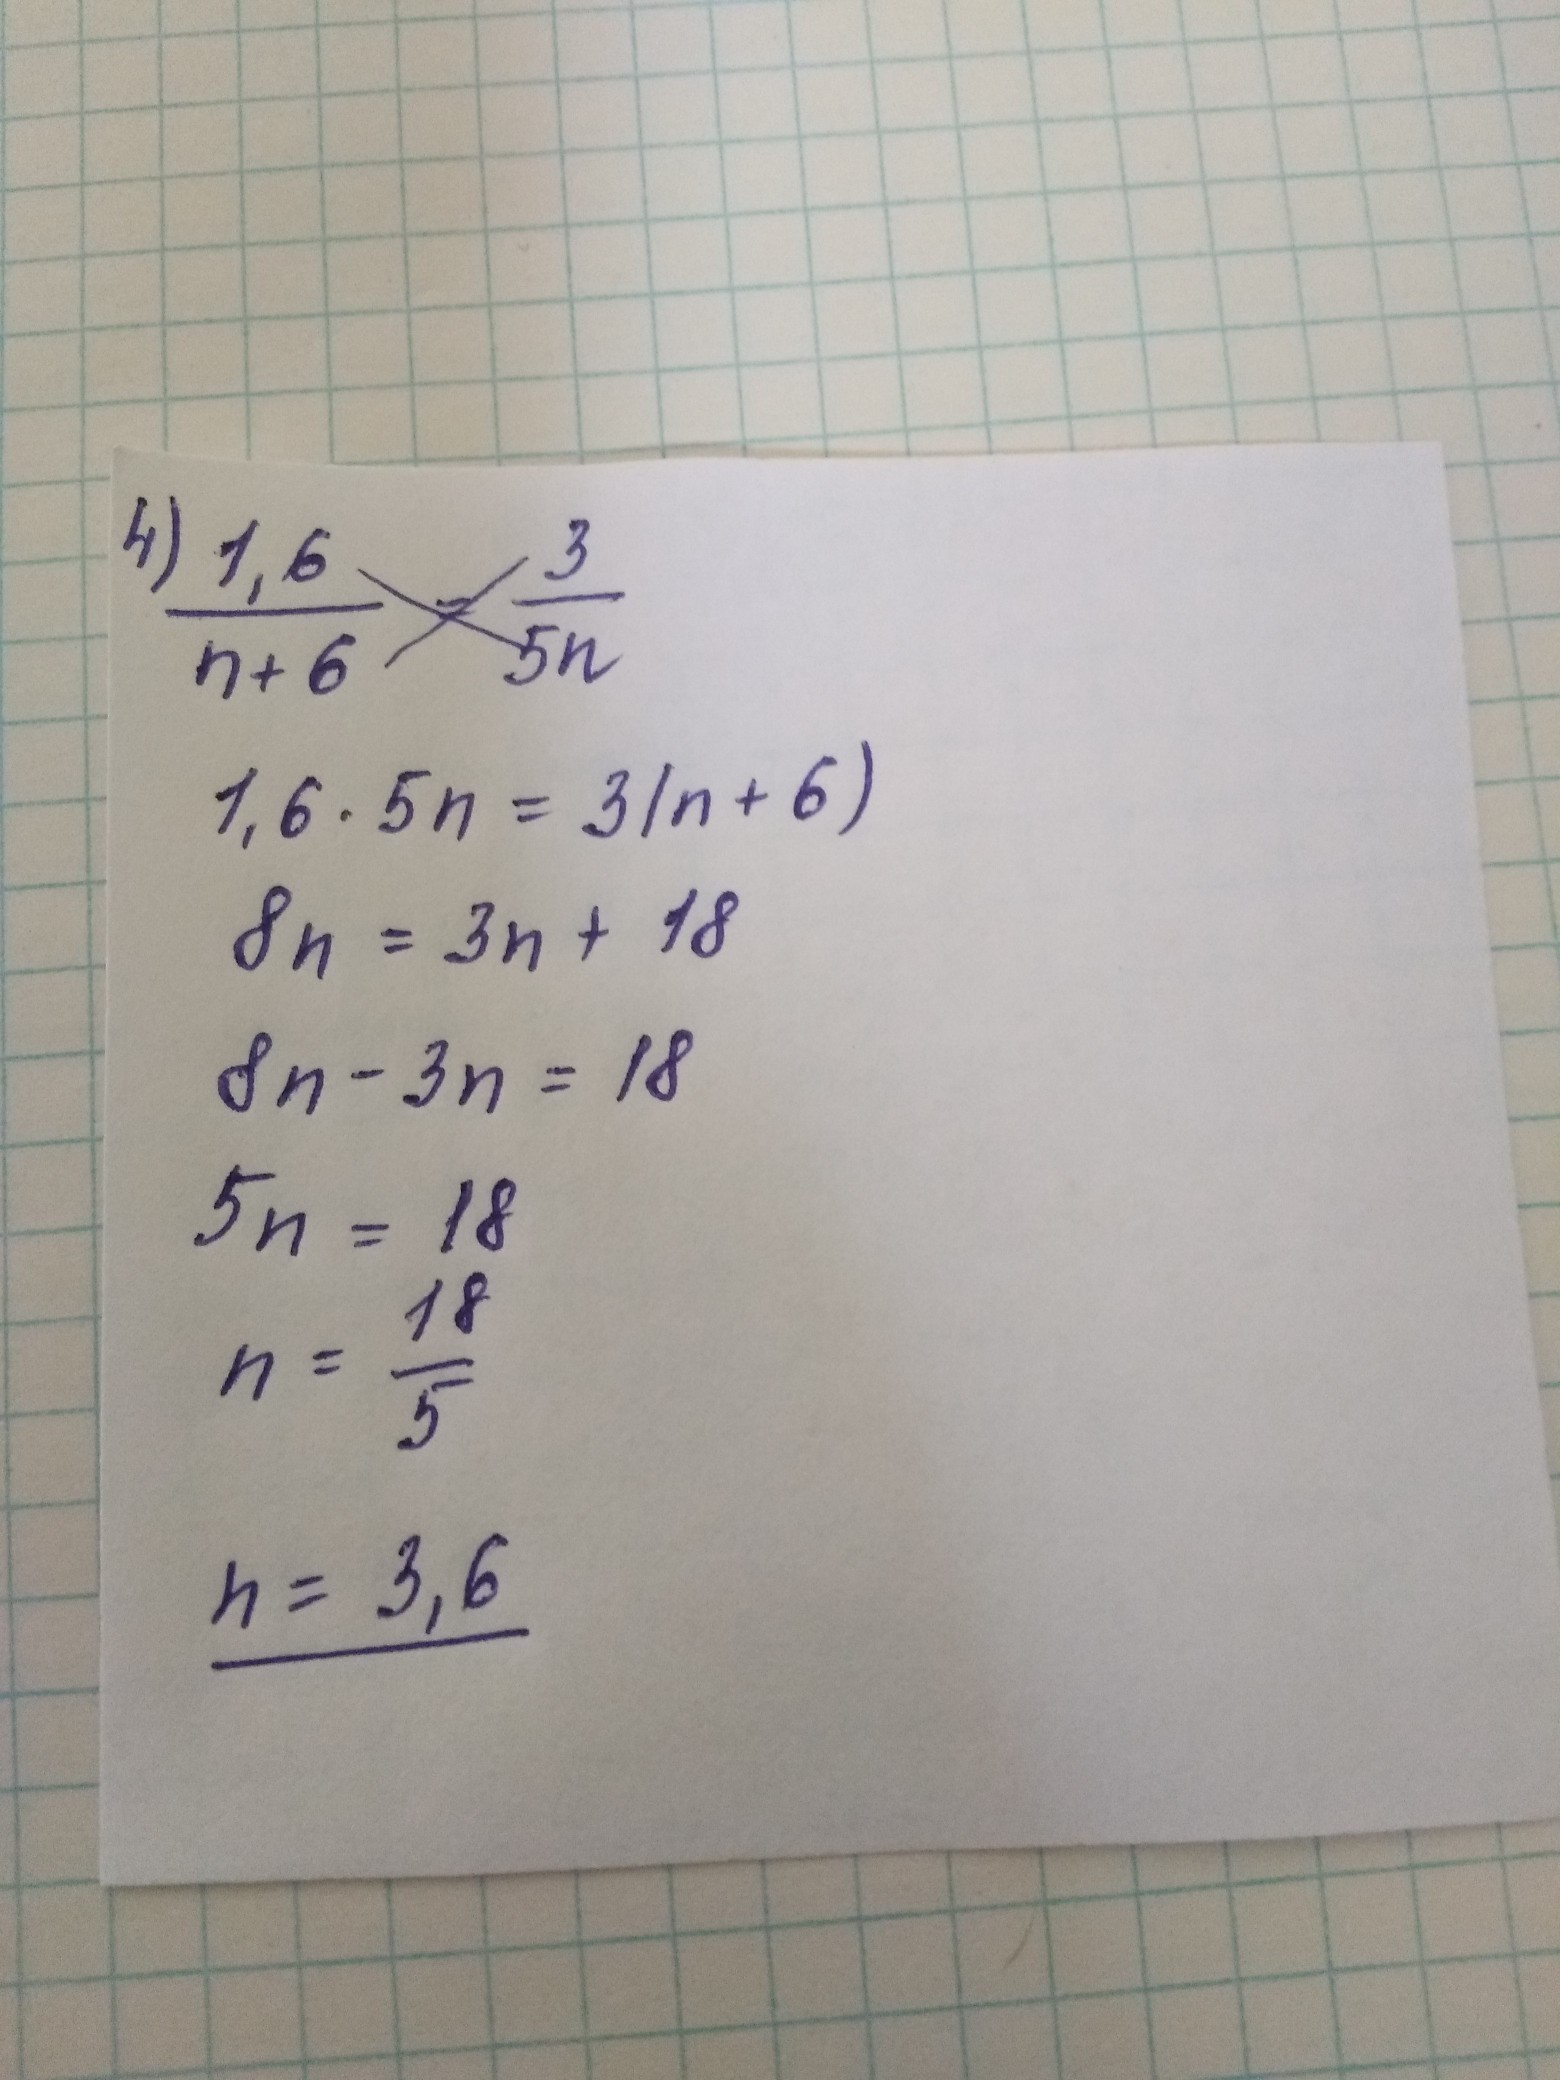 4) 1,6 / n+6 = 3 / 5n
1,6 · 5n = 3(n + 6)
8n = 3n + 18
8n - 3n = 18
5n = 18
n = 18 / 5
n = 3,6